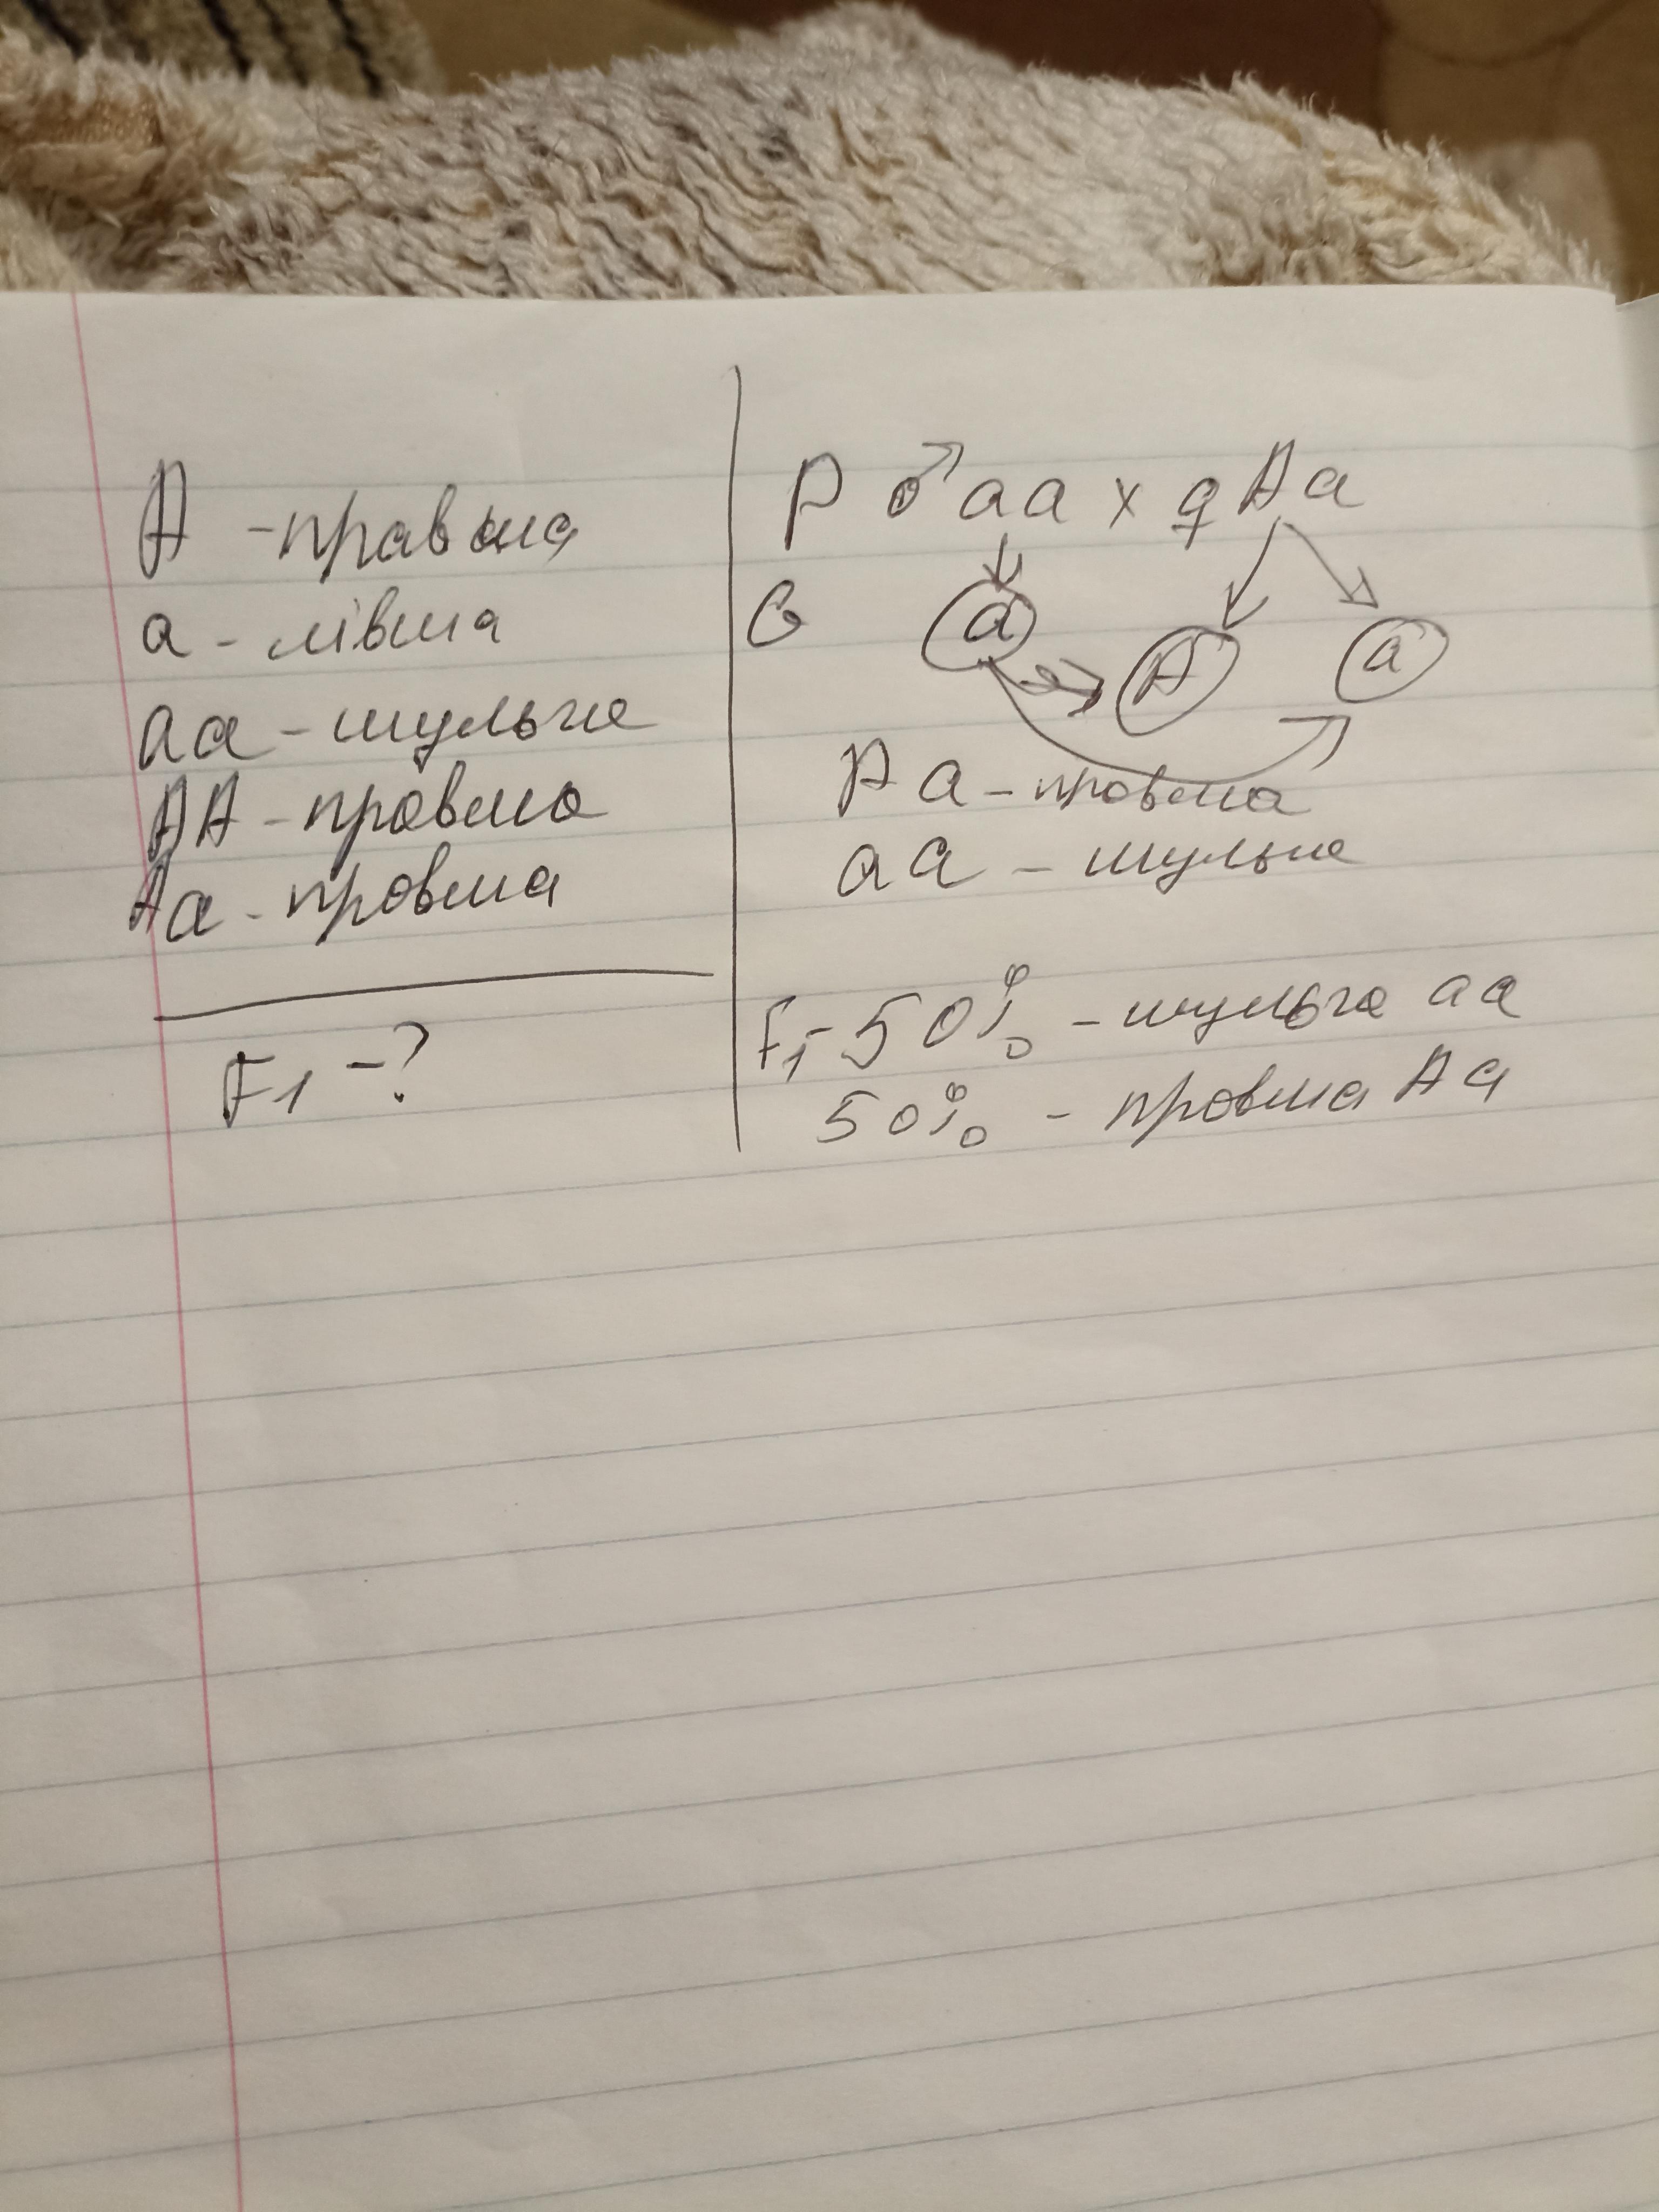 A - правша
a - лівша
aa - шульга
AA - правша
Aa - правша
F1 - ?
P ♂ aa x ♀ Aa
G a A a
Aa - правша
aa - шульга
F1 - 50% - шульга aa
50% - правша Aa